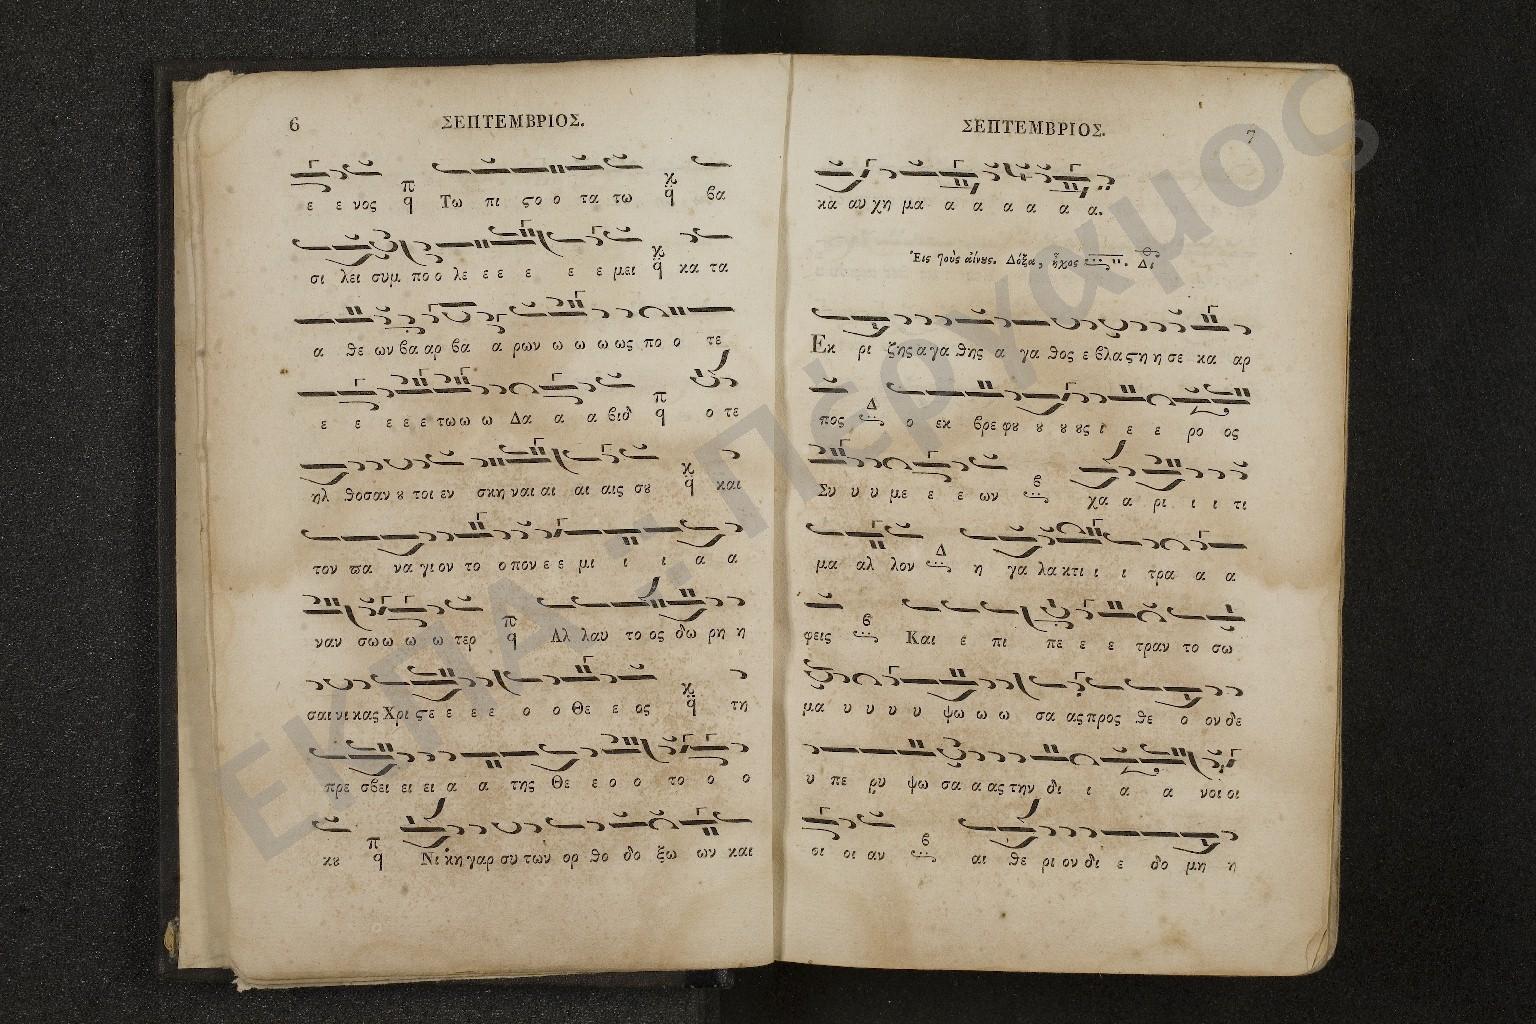 6
ΣΕΠΤΕΜΒΡΙΟΣ.
ε ε νος Τω πι ςο ο τα τω βα
σι λει συμ πο ο λε ε ε ε ε ε μει κα τα
α θε ων βα αρ βα α ρων ω ω ω ως πο ο τε
ε ε ε ε ε τω ω ω Δα α α βιδ ο τε
ηλ θοσαν ȣ τοι εν σκη ναι αι αι αις σȣ και
τον ϖα να γι ον το ο πον ε ε μι ι ι α α
ναν σω ω ω ω τερ Αλ λαυ το ος δω ρη η
σαι νι κας Χρι ςε ε ε ε ο ο Θε ε ος τη
πρε σβει ει ει α α της Θε ε ο ο το ο ο
κȣ Νι κη γαρ συ των ορ θο δο ξω ων και
ΣΕΠΤΕΜΒΡΙΟΣ.
7
κα αυ χη μα α α α α α α.
Ἐις τοὺς αἴνȣς. Δόξα, ἦχος Δι
Εκ ρι ζης α γα θης α γα θος ε βλα ςη η σε κα αρ
πος Δ ο εκ βρε φȣ ȣ ȣ ȣς ι ε ε ρο ος
Συ υ υ με ε ε ων β χα α ρι ι ι τι
μα αλ λον Δ η γα λα κτι ι ι τρα α α
φεις β Και ε πι πε ε ε τραν το σω
μα υ υ υ υ ψω ω ω σα ας προς θε ο ον δε
υ πε ρυ ψω σα α ας την δι ι α α νοι οι
οι οι αν β αι θε ρι ον δι ε δο μη η
ΕΚΠΑ : Πέργαμος